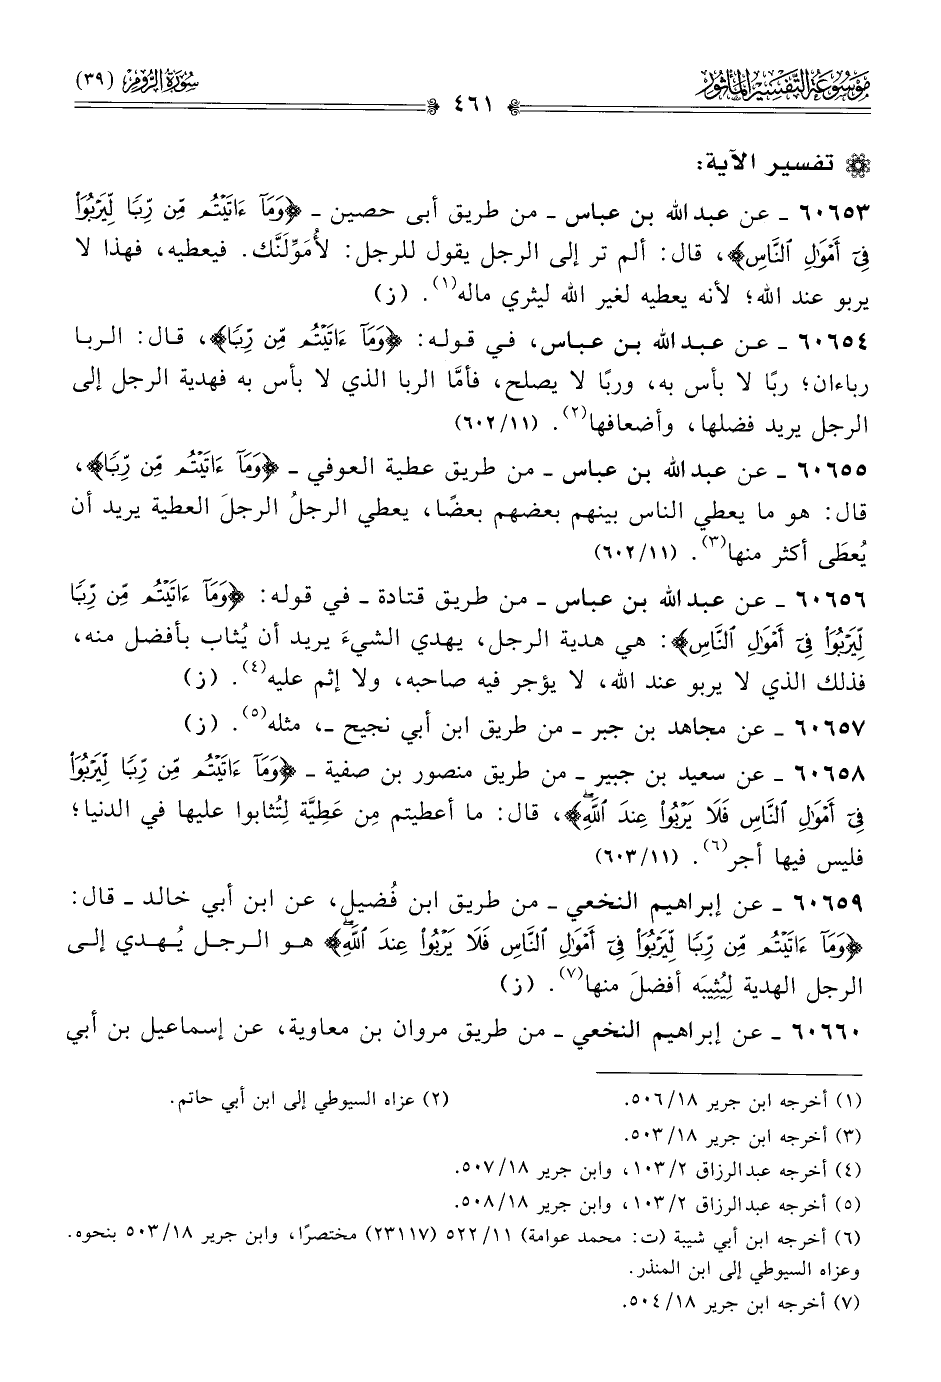 مَوْسُوعَة التَّفْسِير المَأثُور
سُورَة الرُّوم (٣٩)
٤٦١
تفسير الآية:
٦٠٦٥٣ ـ عن عبد الله بن عباس ـ من طريق أبى حصين ـ ﴿وَمَآ ءَاتَيْتُم مِّن رِّبًا لِّيَرْبُوَا۟
فِىٓ أَمْوَٰلِ ٱلنَّاسِ﴾، قال: ألم تر إلى الرجل يقول للرجل: لأُمَوِّلَنَّك. فيعطيه، فهذا لا
يربو عند الله؛ لأنه يعطيه لغير الله ليثري ماله(١). (ز)
٦٠٦٥٤ ـ عن عبد الله بن عباس، في قوله: ﴿وَمَآ ءَاتَيْتُم مِّن رِّبًا﴾، قال: الربا
رباءان؛ ربًا لا بأس به، وربًا لا يصلح، فأمَّا الربا الذي لا بأس به فهدية الرجل إلى
الرجل يريد فضلها، وأضعافها(٢). (٦٠٢/١١)
٦٠٦٥٥ ـ عن عبد الله بن عباس ـ من طريق عطية العوفي ـ ﴿وَمَآ ءَاتَيْتُم مِّن رِّبًا﴾،
قال: هو ما يعطي الناس بينهم بعضهم بعضًا، يعطي الرجلُ الرجلَ العطية يريد أن
يُعطَى أكثر منها(٣). (٦٠٢/١١)
٦٠٦٥٦ ـ عن عبد الله بن عباس ـ من طريق قتادة ـ في قوله: ﴿وَمَآ ءَاتَيْتُم مِّن رِّبًا
لِّيَرْبُوَا۟ فِىٓ أَمْوَٰلِ ٱلنَّاسِ﴾: هي هدية الرجل، يهدي الشيءَ يريد أن يُثاب بأفضل منه،
فذلك الذي لا يربو عند الله، لا يؤجر فيه صاحبه، ولا إثم عليه(٤). (ز)
٦٠٦٥٧ ـ عن مجاهد بن جبر ـ من طريق ابن أبي نجيح ـ، مثله(٥). (ز)
٦٠٦٥٨ ـ عن سعيد بن جبير ـ من طريق منصور بن صفية ـ ﴿وَمَآ ءَاتَيْتُم مِّن رِّبًا لِّيَرْبُوَا۟
فِىٓ أَمْوَٰلِ ٱلنَّاسِ فَلَا يَرْبُوا۟ عِندَ ٱللَّهِۖ﴾، قال: ما أعطيتم مِن عَطِيَّة لِتُثابوا عليها في الدنيا؛
فليس فيها أجر(٦). (٦٠٣/١١)
٦٠٦٥٩ ـ عن إبراهيم النخعي ـ من طريق ابن فُضيل، عن ابن أبي خالد ـ قال:
﴿وَمَآ ءَاتَيْتُم مِّن رِّبًا لِّيَرْبُوَا۟ فِىٓ أَمْوَٰلِ ٱلنَّاسِ فَلَا يَرْبُوا۟ عِندَ ٱللَّهِۖ﴾ هو الرجل يُهدي إلى
الرجل الهدية لِيُثِيبَه أفضلَ منها(٧). (ز)
٦٠٦٦٠ ـ عن إبراهيم النخعي ـ من طريق مروان بن معاوية، عن إسماعيل بن أبي
(١) أخرجه ابن جرير ٥٠٦/١٨. (٢) عزاه السيوطي إلى ابن أبي حاتم.
(٣) أخرجه ابن جرير ٥٠٣/١٨.
(٤) أخرجه عبد الرزاق ١٠٣/٢، وابن جرير ٥٠٧/١٨.
(٥) أخرجه عبد الرزاق ١٠٣/٢، وابن جرير ٥٠٨/١٨.
(٦) أخرجه ابن أبي شيبة (ت: محمد عوامة) ٥٢٢/١١ (٢٣١١٧) مختصرًا، وابن جرير ٥٠٣/١٨ بنحوه.
وعزاه السيوطي إلى ابن المنذر.
(٧) أخرجه ابن جرير ٥٠٤/١٨.